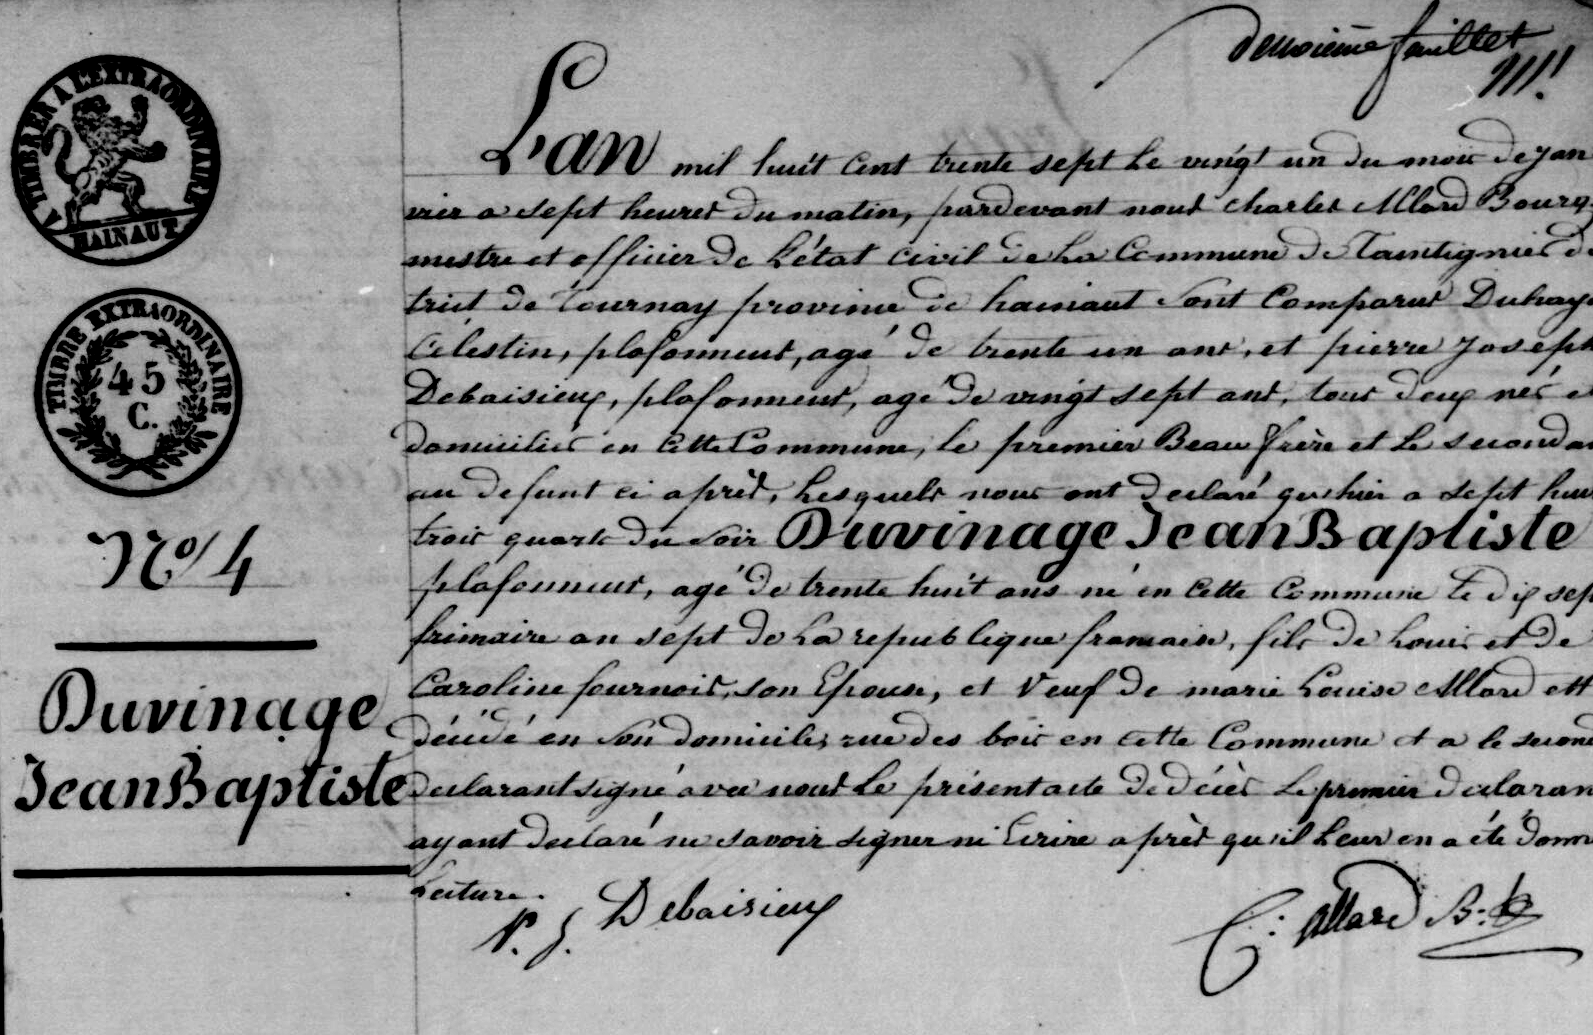 deuxième feuillet
A TIMBRER A L'EXTRAORDINAIRE
HAINAUT
TIMBRE EXTRAORDINAIRE
45
C.
N° 4
Duvinage
Jean Baptiste
L'an mil huit cent trente sept le vingt un du mois de jan
vier a sept heures du matin, pardevant nous Charles Allard Bourg
mestre et officier de l'état civil de la Commune de Taintignies di
trict de tournay province de hainaut sont Comparus Duhay
Célestin, plafonneur, agé de trente un ans, et pierre joseph
Debaisieux, plafonneur, agé de vingt sept ans, tous deux nés e
domiciliés en cette Commune, le premier Beau frère et le second a
au defunt ci après, lesquels nous ont declaré qu'hier a sept heu
trois quarts du soir Duvinage Jean Baptiste
plafonneur, agé de trente huit ans né en cette Commune le dix sep
frimaire an sept de la republique francaise, fils de Louis et de
Caroline fournois, son Epouse, et Veuf de marie Louise Allard est
décédé en son domicile, rue des bois en cette Commune et a le second
declarant signé avec nous le présent acte de décès le premier declaran
ayant declaré ne savoir signer ni Ecrire après qu'il leur en a été donn
Lecture.
P. J. Debaisieux
C: Allard B: